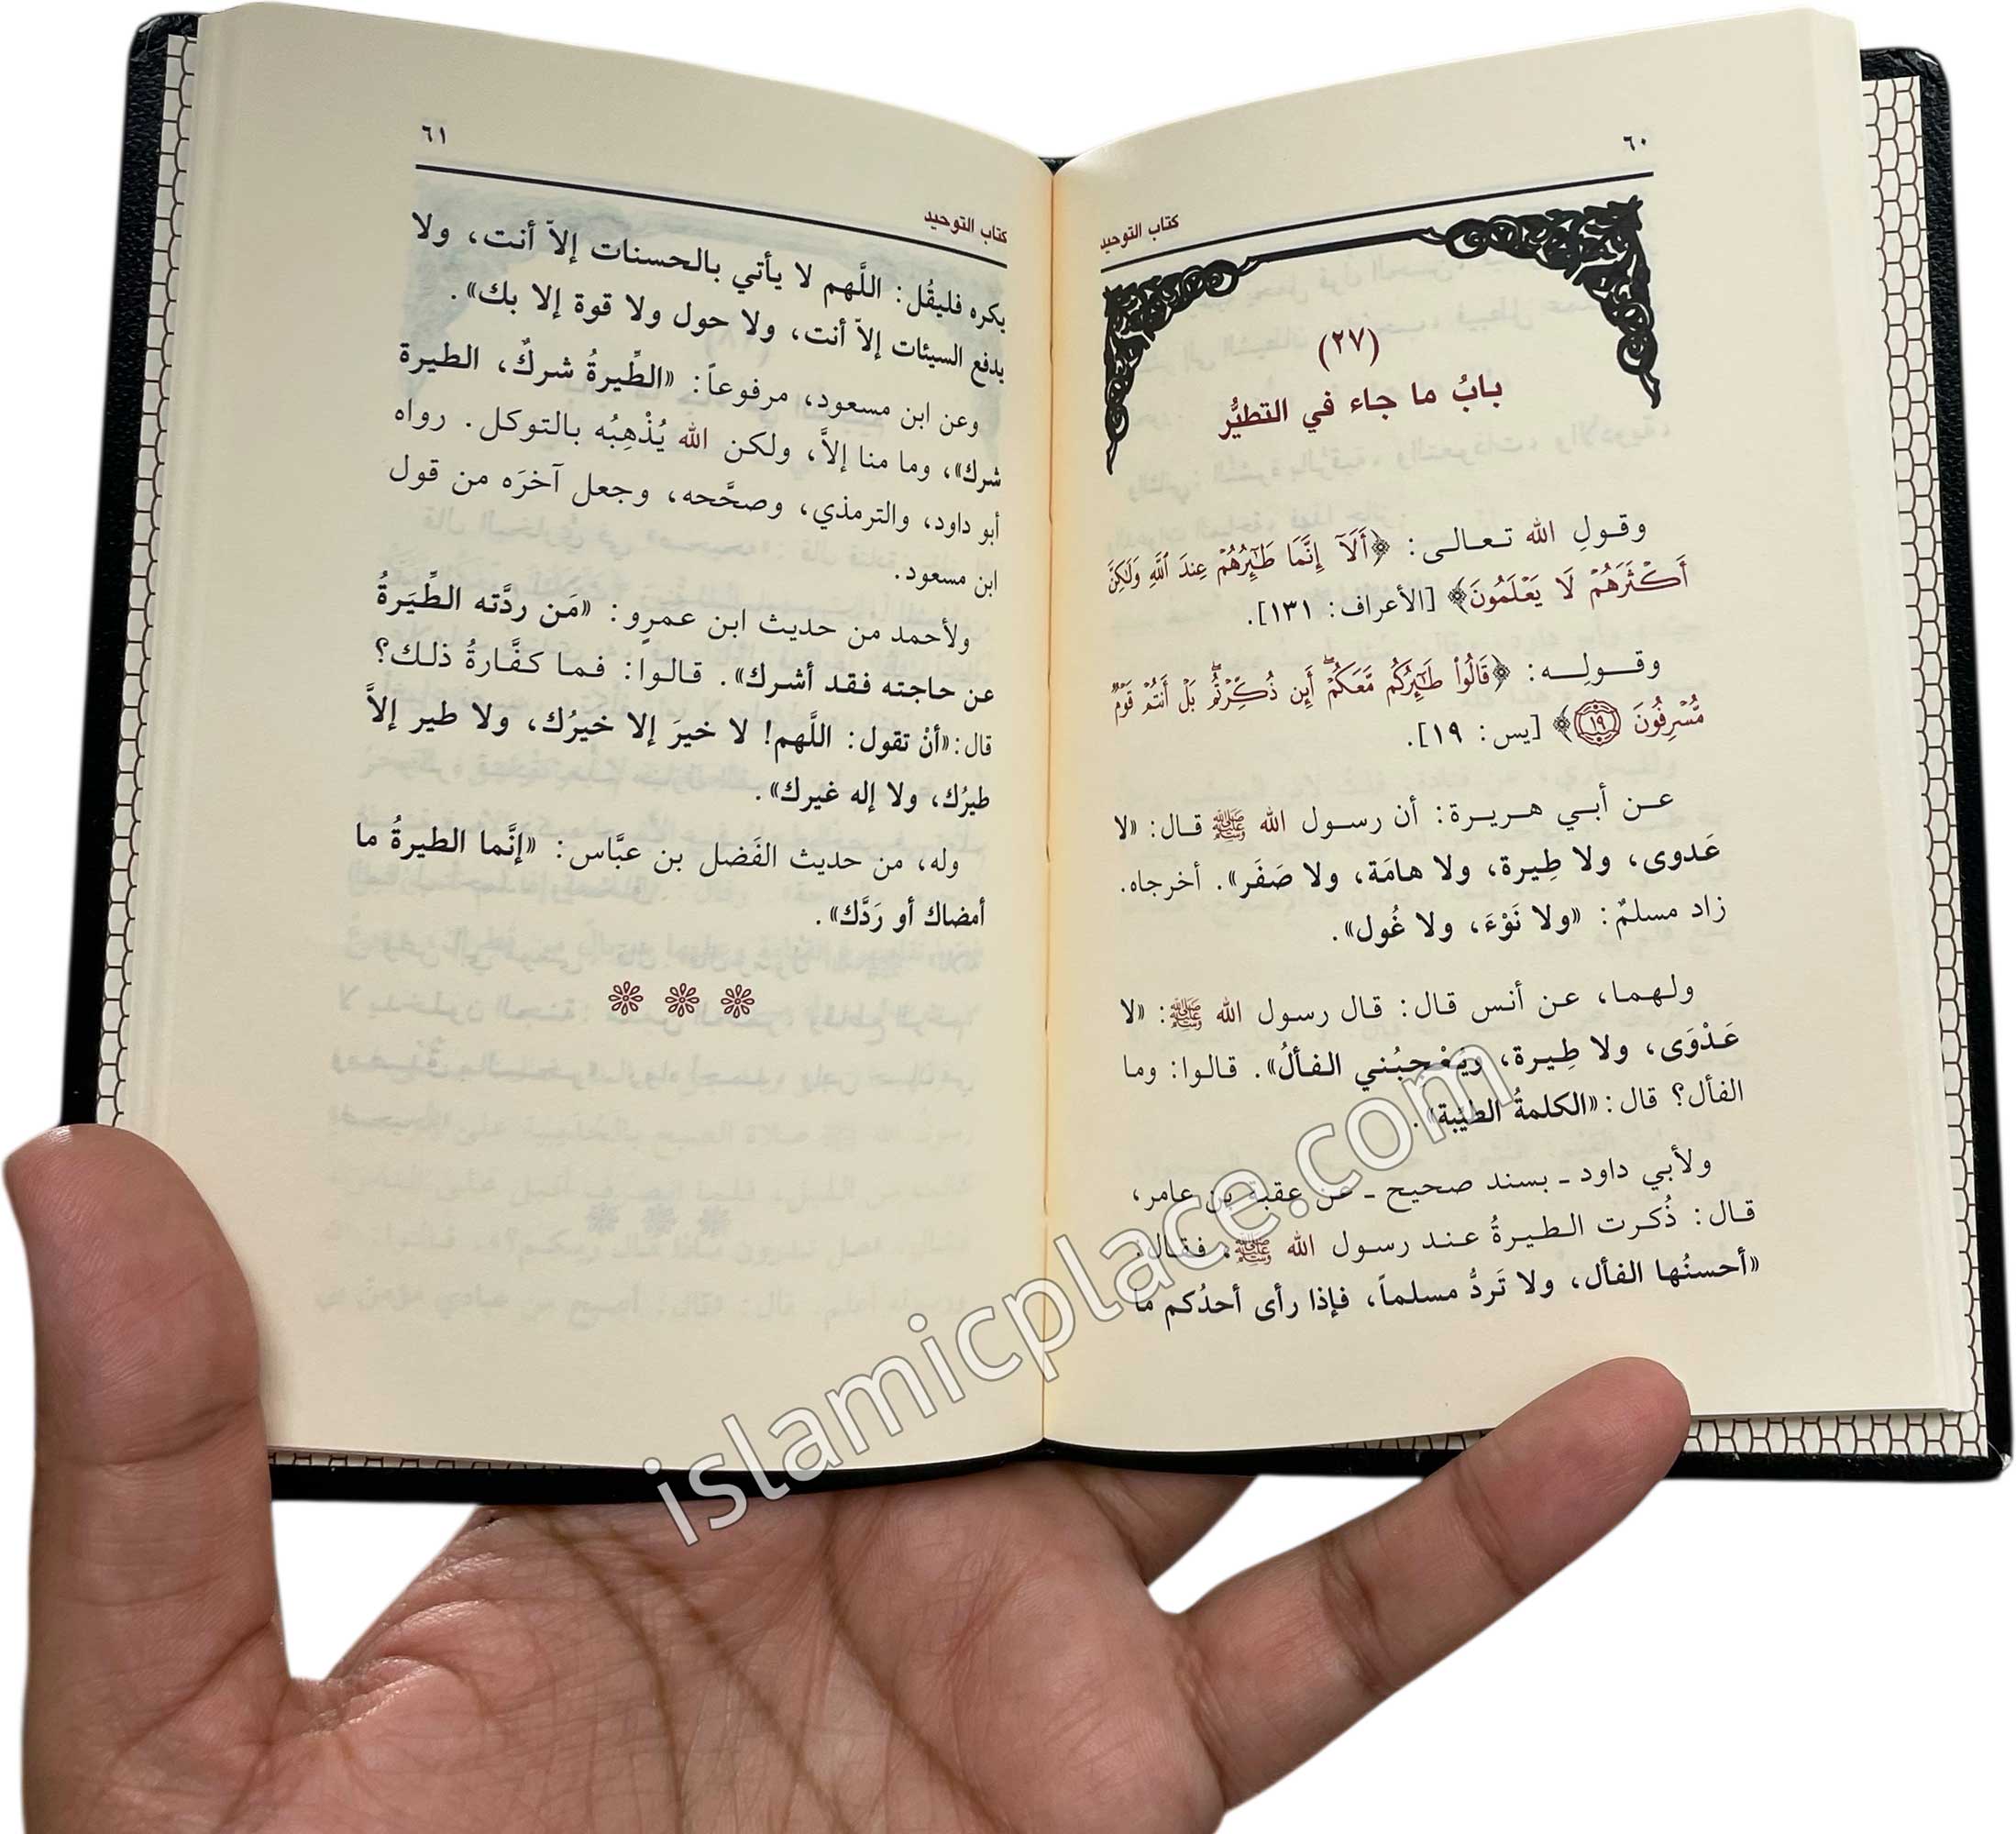 ٦٠
كتاب التوحيد
(٢٧)
بابُ ما جاء في التطيُّر
وقولِ الله تعالى: ﴿أَلَآ إِنَّمَا طَٰٓئِرُهُمْ عِندَ ٱللَّهِ وَلَٰكِنَّ
أَكْثَرَهُمْ لَا يَعْلَمُونَ﴾ [الأعراف: ١٣١].
وقولِه: ﴿قَالُوا۟ طَٰٓئِرُكُم مَّعَكُمْ ۚ أَئِن ذُكِّرْتُم ۚ بَلْ أَنتُمْ قَوْمٌ
مُّسْرِفُونَ ١٩﴾ [يس: ١٩].
عن أبي هريرة: أن رسول الله ﷺ قال: «لا
عَدوى، ولا طِيرة، ولا هامَة، ولا صَفَر». أخرجاه.
زاد مسلمٌ: «ولا نَوْءَ، ولا غُول».
ولهما، عن أنس قال: قال رسول الله ﷺ: «لا
عَدْوَى، ولا طِيرة، ويُعْجِبُني الفألُ». قالوا: وما
الفأل؟ قال: «الكلمةُ الطيّبة».
ولأبي داود ـ بسند صحيح ـ عن عقبة بن عامر،
قال: ذُكرت الطيرةُ عند رسول الله ﷺ، فقال:
«أحسنُها الفأل، ولا تَردُّ مسلماً، فإذا رأى أحدُكم ما
٦١
كتاب التوحيد
يكره فليقُل: اللَّهم لا يأتي بالحسنات إلاّ أنت، ولا
يدفع السيئات إلاّ أنت، ولا حول ولا قوة إلا بك».
وعن ابن مسعود، مرفوعاً: «الطِّيرةُ شركٌ، الطيرة
شرك»، وما منا إلاَّ، ولكن الله يُذْهِبُه بالتوكل. رواه
أبو داود، والترمذي، وصحَّحه، وجعل آخرَه من قول
ابن مسعود.
ولأحمد من حديث ابن عمرٍو: «مَن ردَّته الطِّيَرةُ
عن حاجته فقد أشرك». قالوا: فما كفَّارةُ ذلك؟
قال: «أنْ تقول: اللَّهم! لا خيرَ إلا خيرُك، ولا طير إلاَّ
طيرُك، ولا إله غيرك».
وله، من حديث الفَضل بن عبَّاس: «إنَّما الطيرةُ ما
أمضاك أو رَدَّك».
islamicplace.com